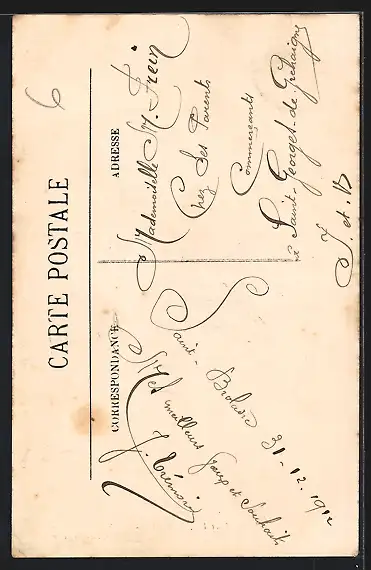 6
CARTE POSTALE
CORRESPONDANCE
Saint-Broladre 31-12.1912
Mes meilleurs Vœux et Souhaits
ADRESSE
Mademoiselle M. Frein
Chez Ses Parents
Commerçants
à Saint-Georges-de Gréhaigne
I. et. V